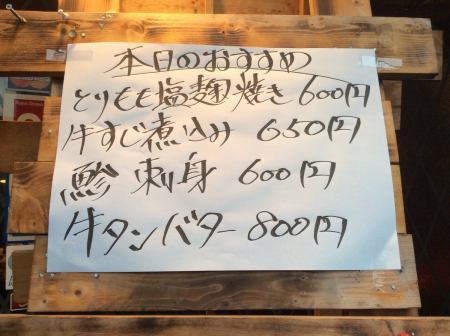 本日のおすすめ
とりもも塩麹焼き 600円
牛すじ煮込み 650円
鯵 刺身 600円
牛タンバター 800円